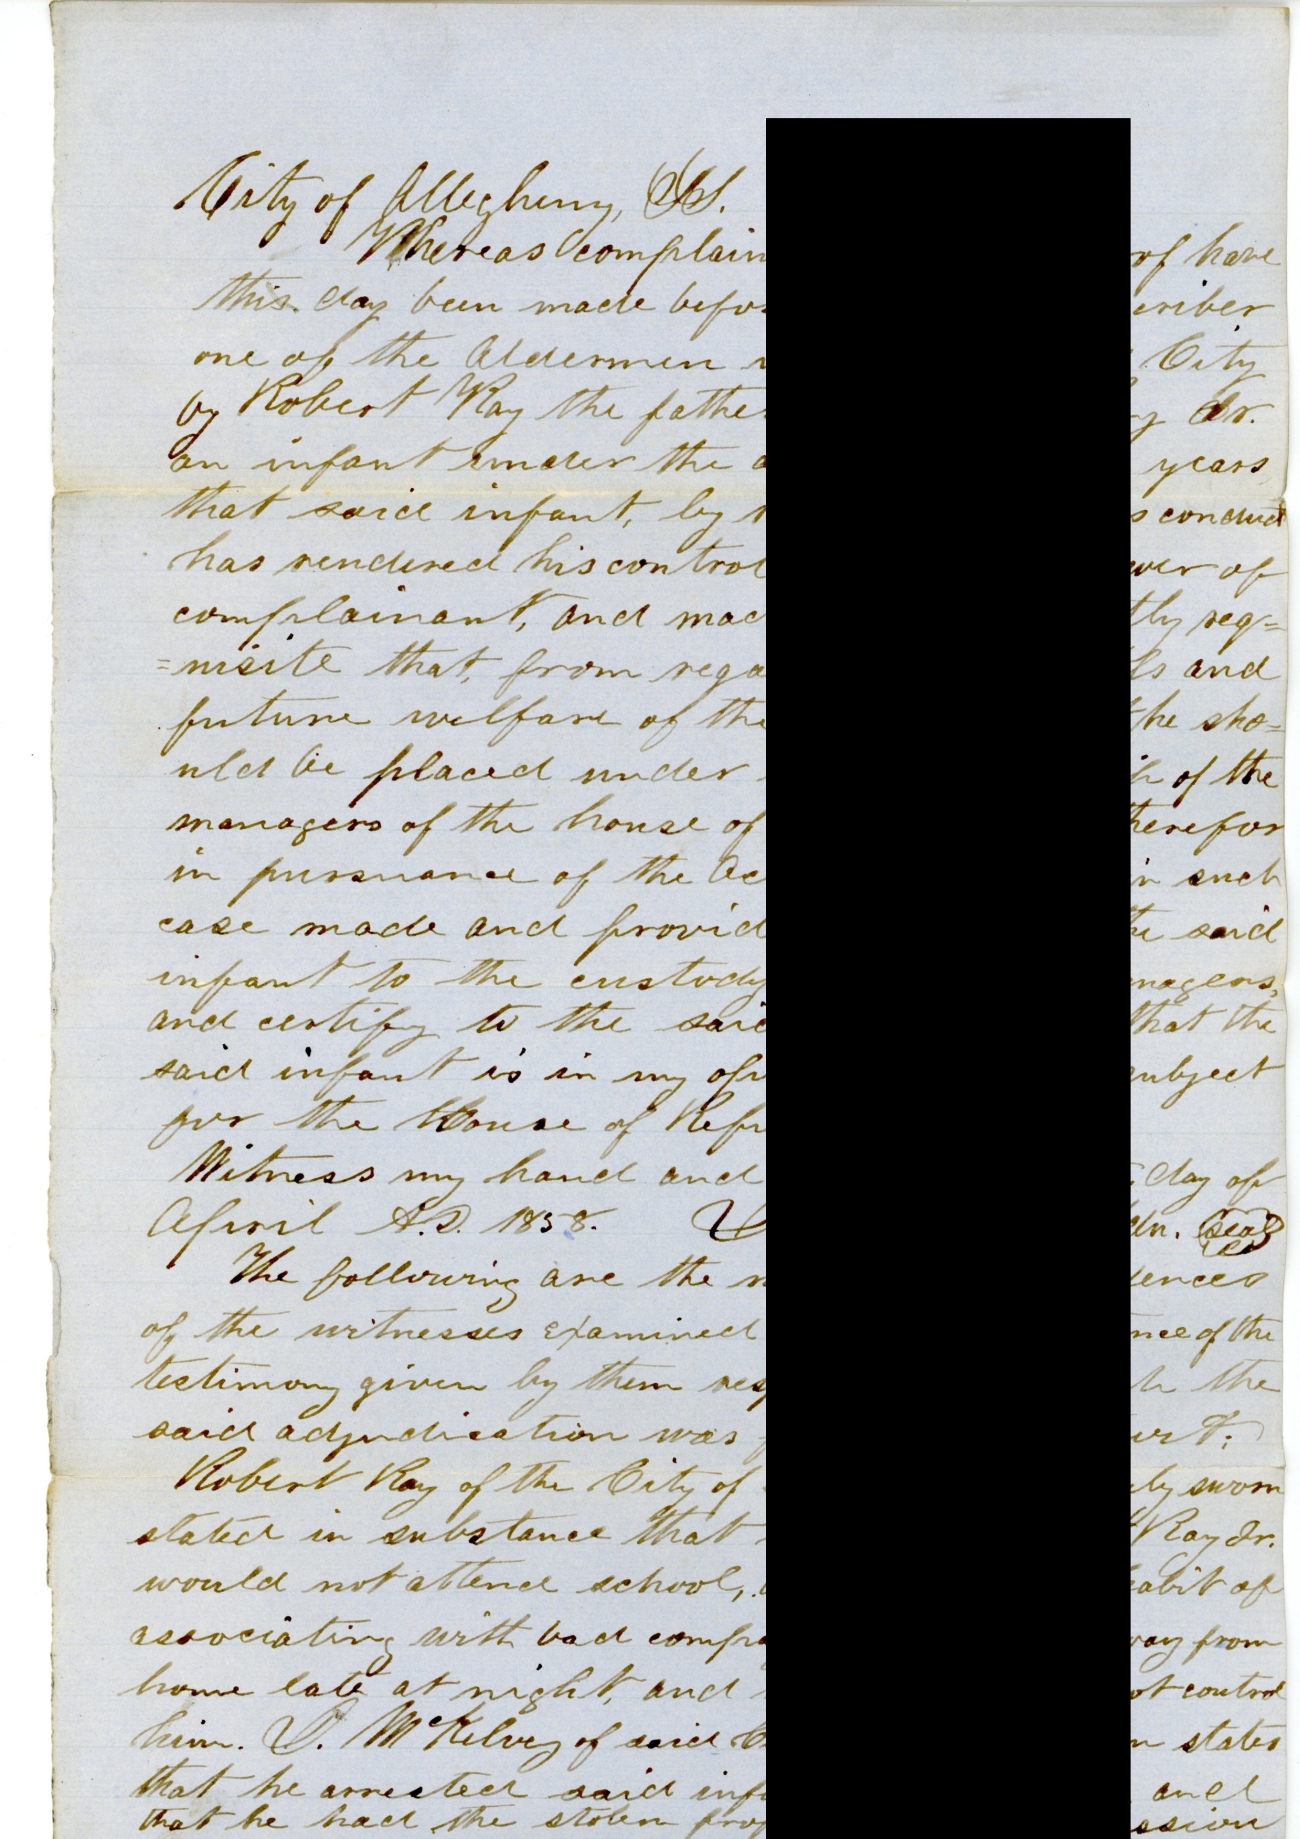 City of Allegheny, SS.
Whereas complain of have
this day been made befo criber
one of the Aldermen City
by Robert Ray the fathe y Jr.
an infant under the a years
that said infant, by s conduct
has rendered his control wer of
complainant, and mad tly req=
=uisite that, from rega ls and
future welfare of the the sho=
uld be placed under of the
managers of the house of herefor
in pursuance of the Ac in such
case made and provid he said
infant to the custody nagers,
and certify to the said that the
said infant is in my opi subject
for the House of Refu
Witness my hand and day of
April A.D. 1858. D ldn. seal
The following are the dences
of the witnesses examined nce of the
testimony given by them res h the
said adjudication was
Robert Ray of the City of uly sworn
stated in substance that Ray Jr.
would not attend school, habit of
associating with bad compa way from
home late at night, and ot control
him. D. McKelvey of said n states
that he arrested said inf and
that he had the stolen prop ssion